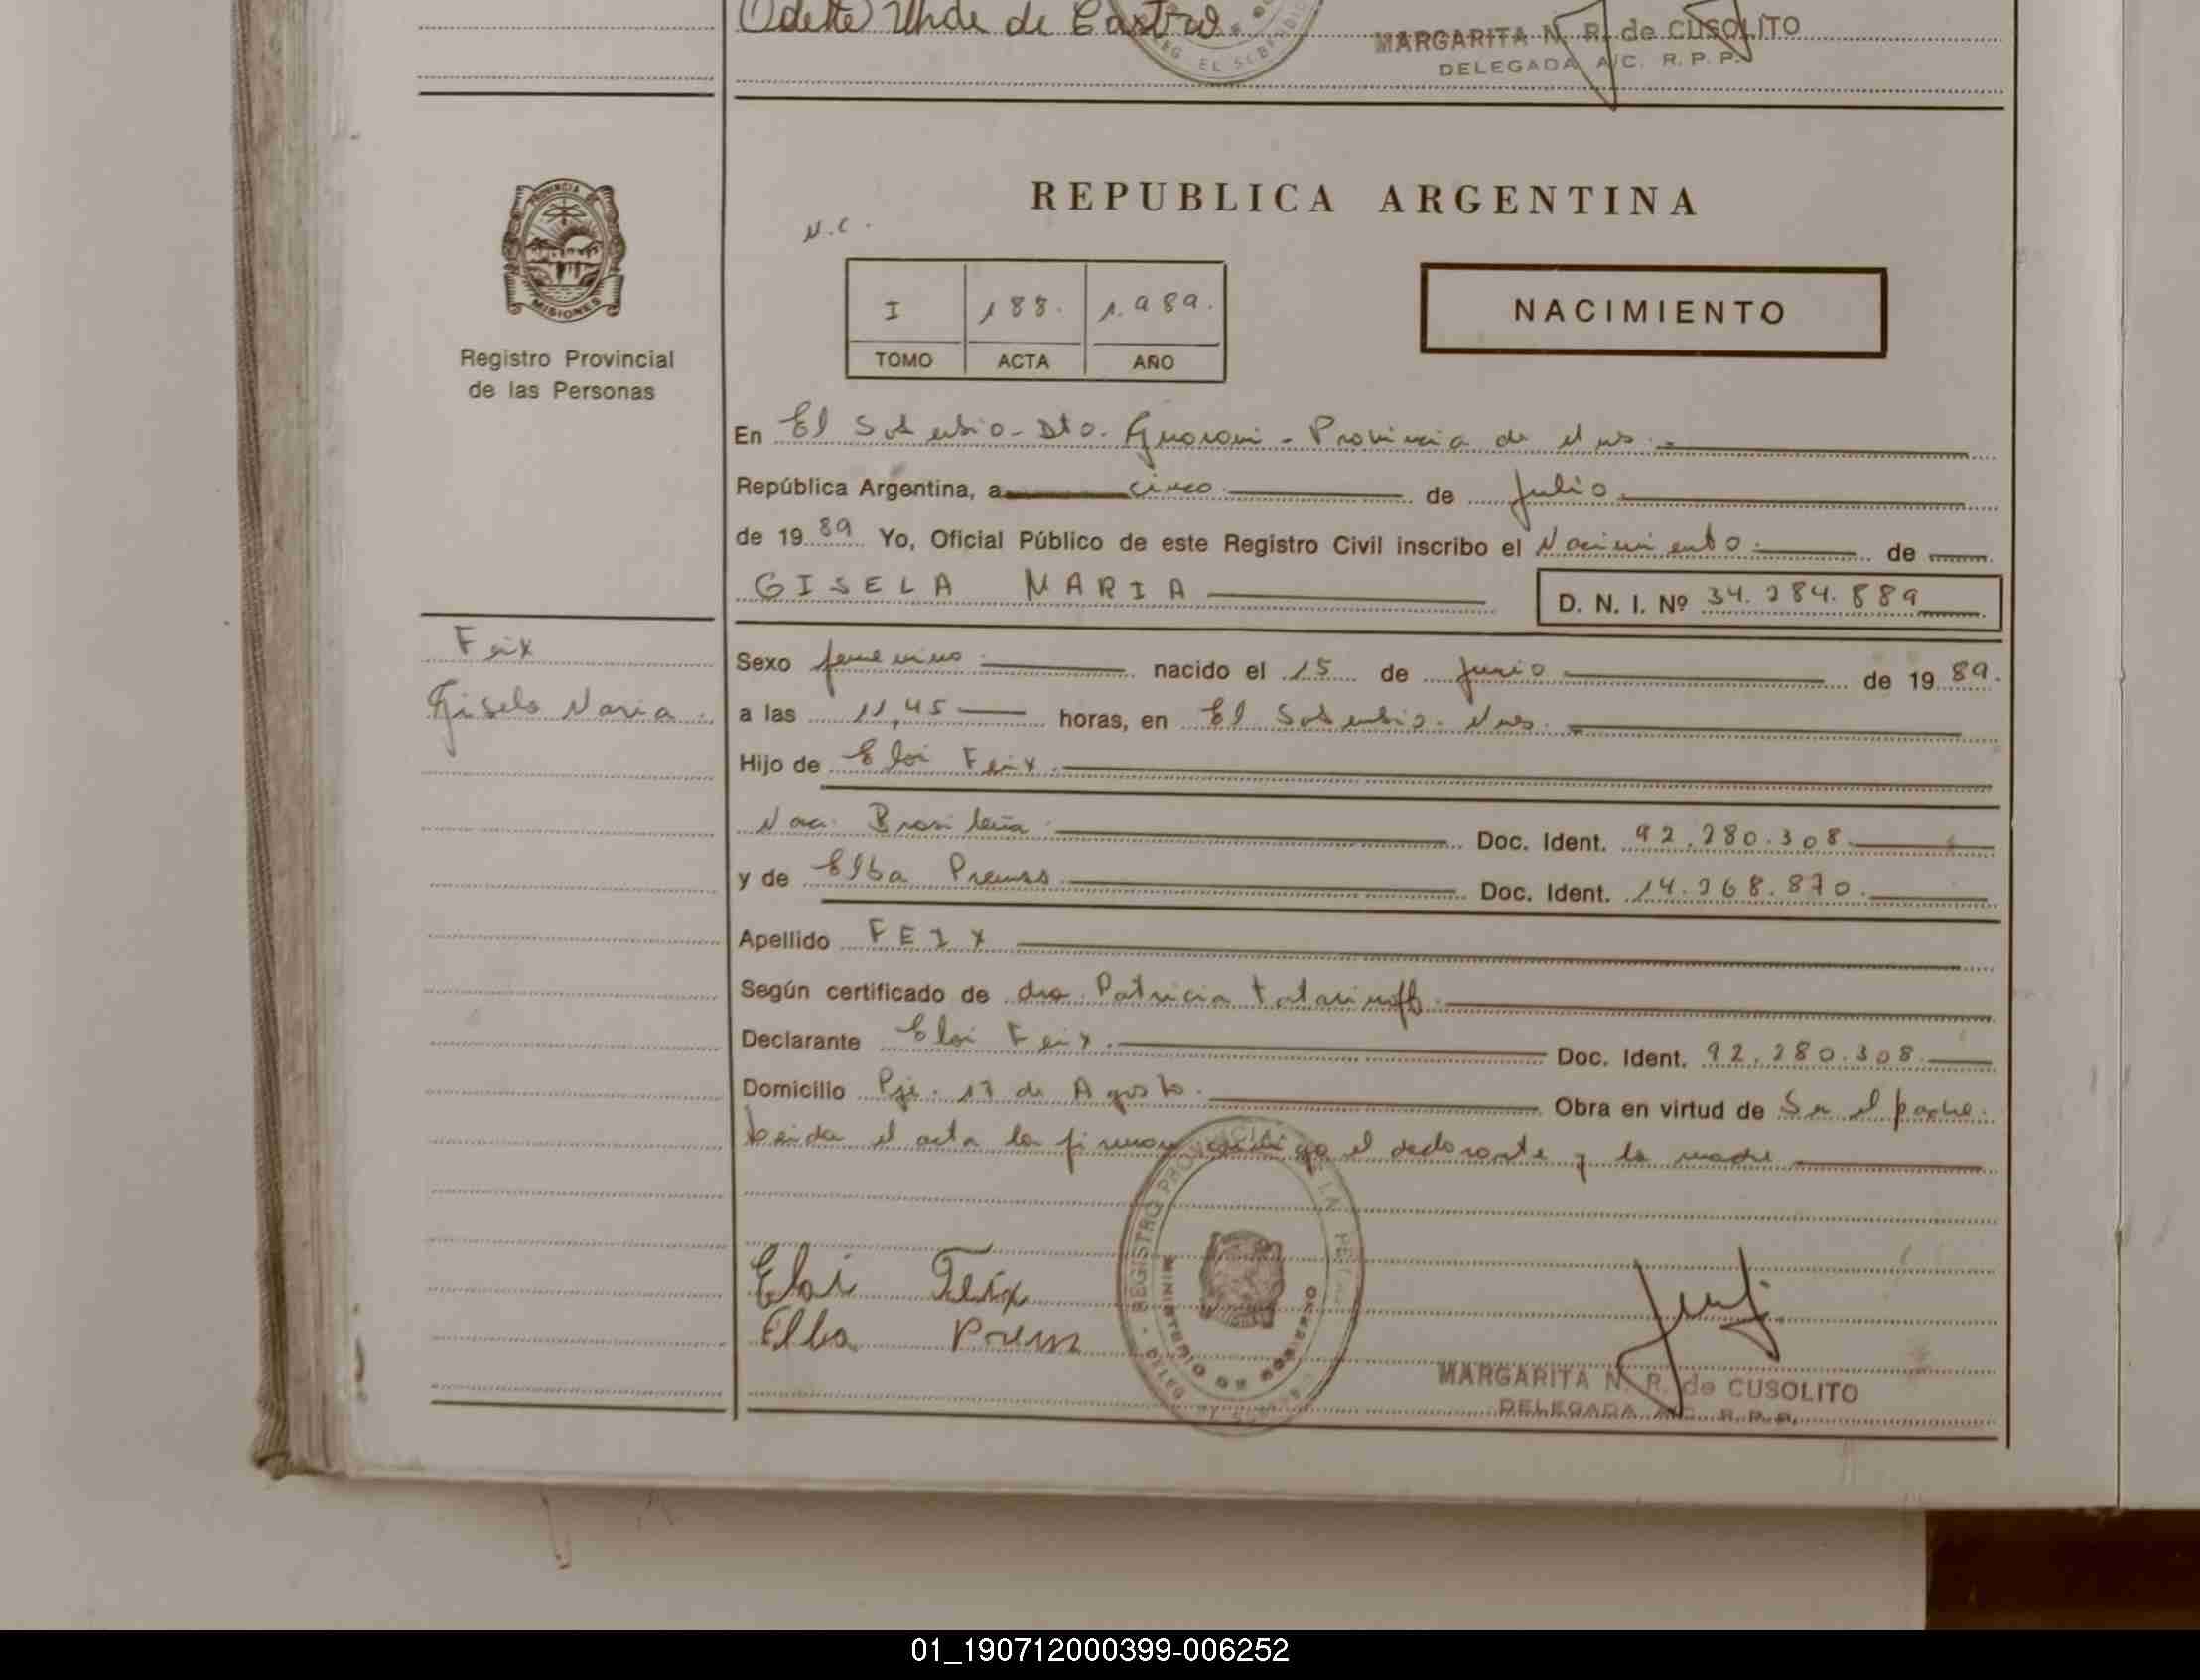 Odette Uhde de Castro
MARGARITA N. R. de CUSOLITO
DELEGADA A/C. R. P. P.
PROVINCIA DE
MISIONES
Registro Provincial
de las Personas
REPUBLICA ARGENTINA
N.C.
I 188. 1.989.
TOMO ACTA AÑO
NACIMIENTO
En El Soberbio - Dto. Guarani - Provincia de Mnes.
República Argentina, a cinco de Julio
de 1989 Yo, Oficial Público de este Registro Civil inscribo el Nacimiento de
GISELA MARIA
D. N. I. Nº 34.284.889
Feix
Gisela Maria.
Sexo femenino nacido el 15 de Junio de 1989.
a las 11,45 horas, en El Soberbio. Mnes.
Hijo de Eloi Feix.
Nac. Brasileña Doc. Ident. 92.280.308
y de Elba Preuss Doc. Ident. 14.268.870.
Apellido FEIX
Según certificado de dra. Patricia Tatarinoff.
Declarante Eloi Feix. Doc. Ident. 92.280.308
Domicilio Pje. 17 de Agosto. Obra en virtud de Ser el padre.
Leida el acta la firman conmigo el declarante y la madre
Eloi Feix
Elba Preuss
REGISTRO PROVINCIAL DE LAS PERSONAS
MINISTERIO DE GOBIERNO
DELEG. EL SOBERBIO
MARGARITA N. R. de CUSOLITO
DELEGADA A/C. R. P. P.
01_190712000399-006252